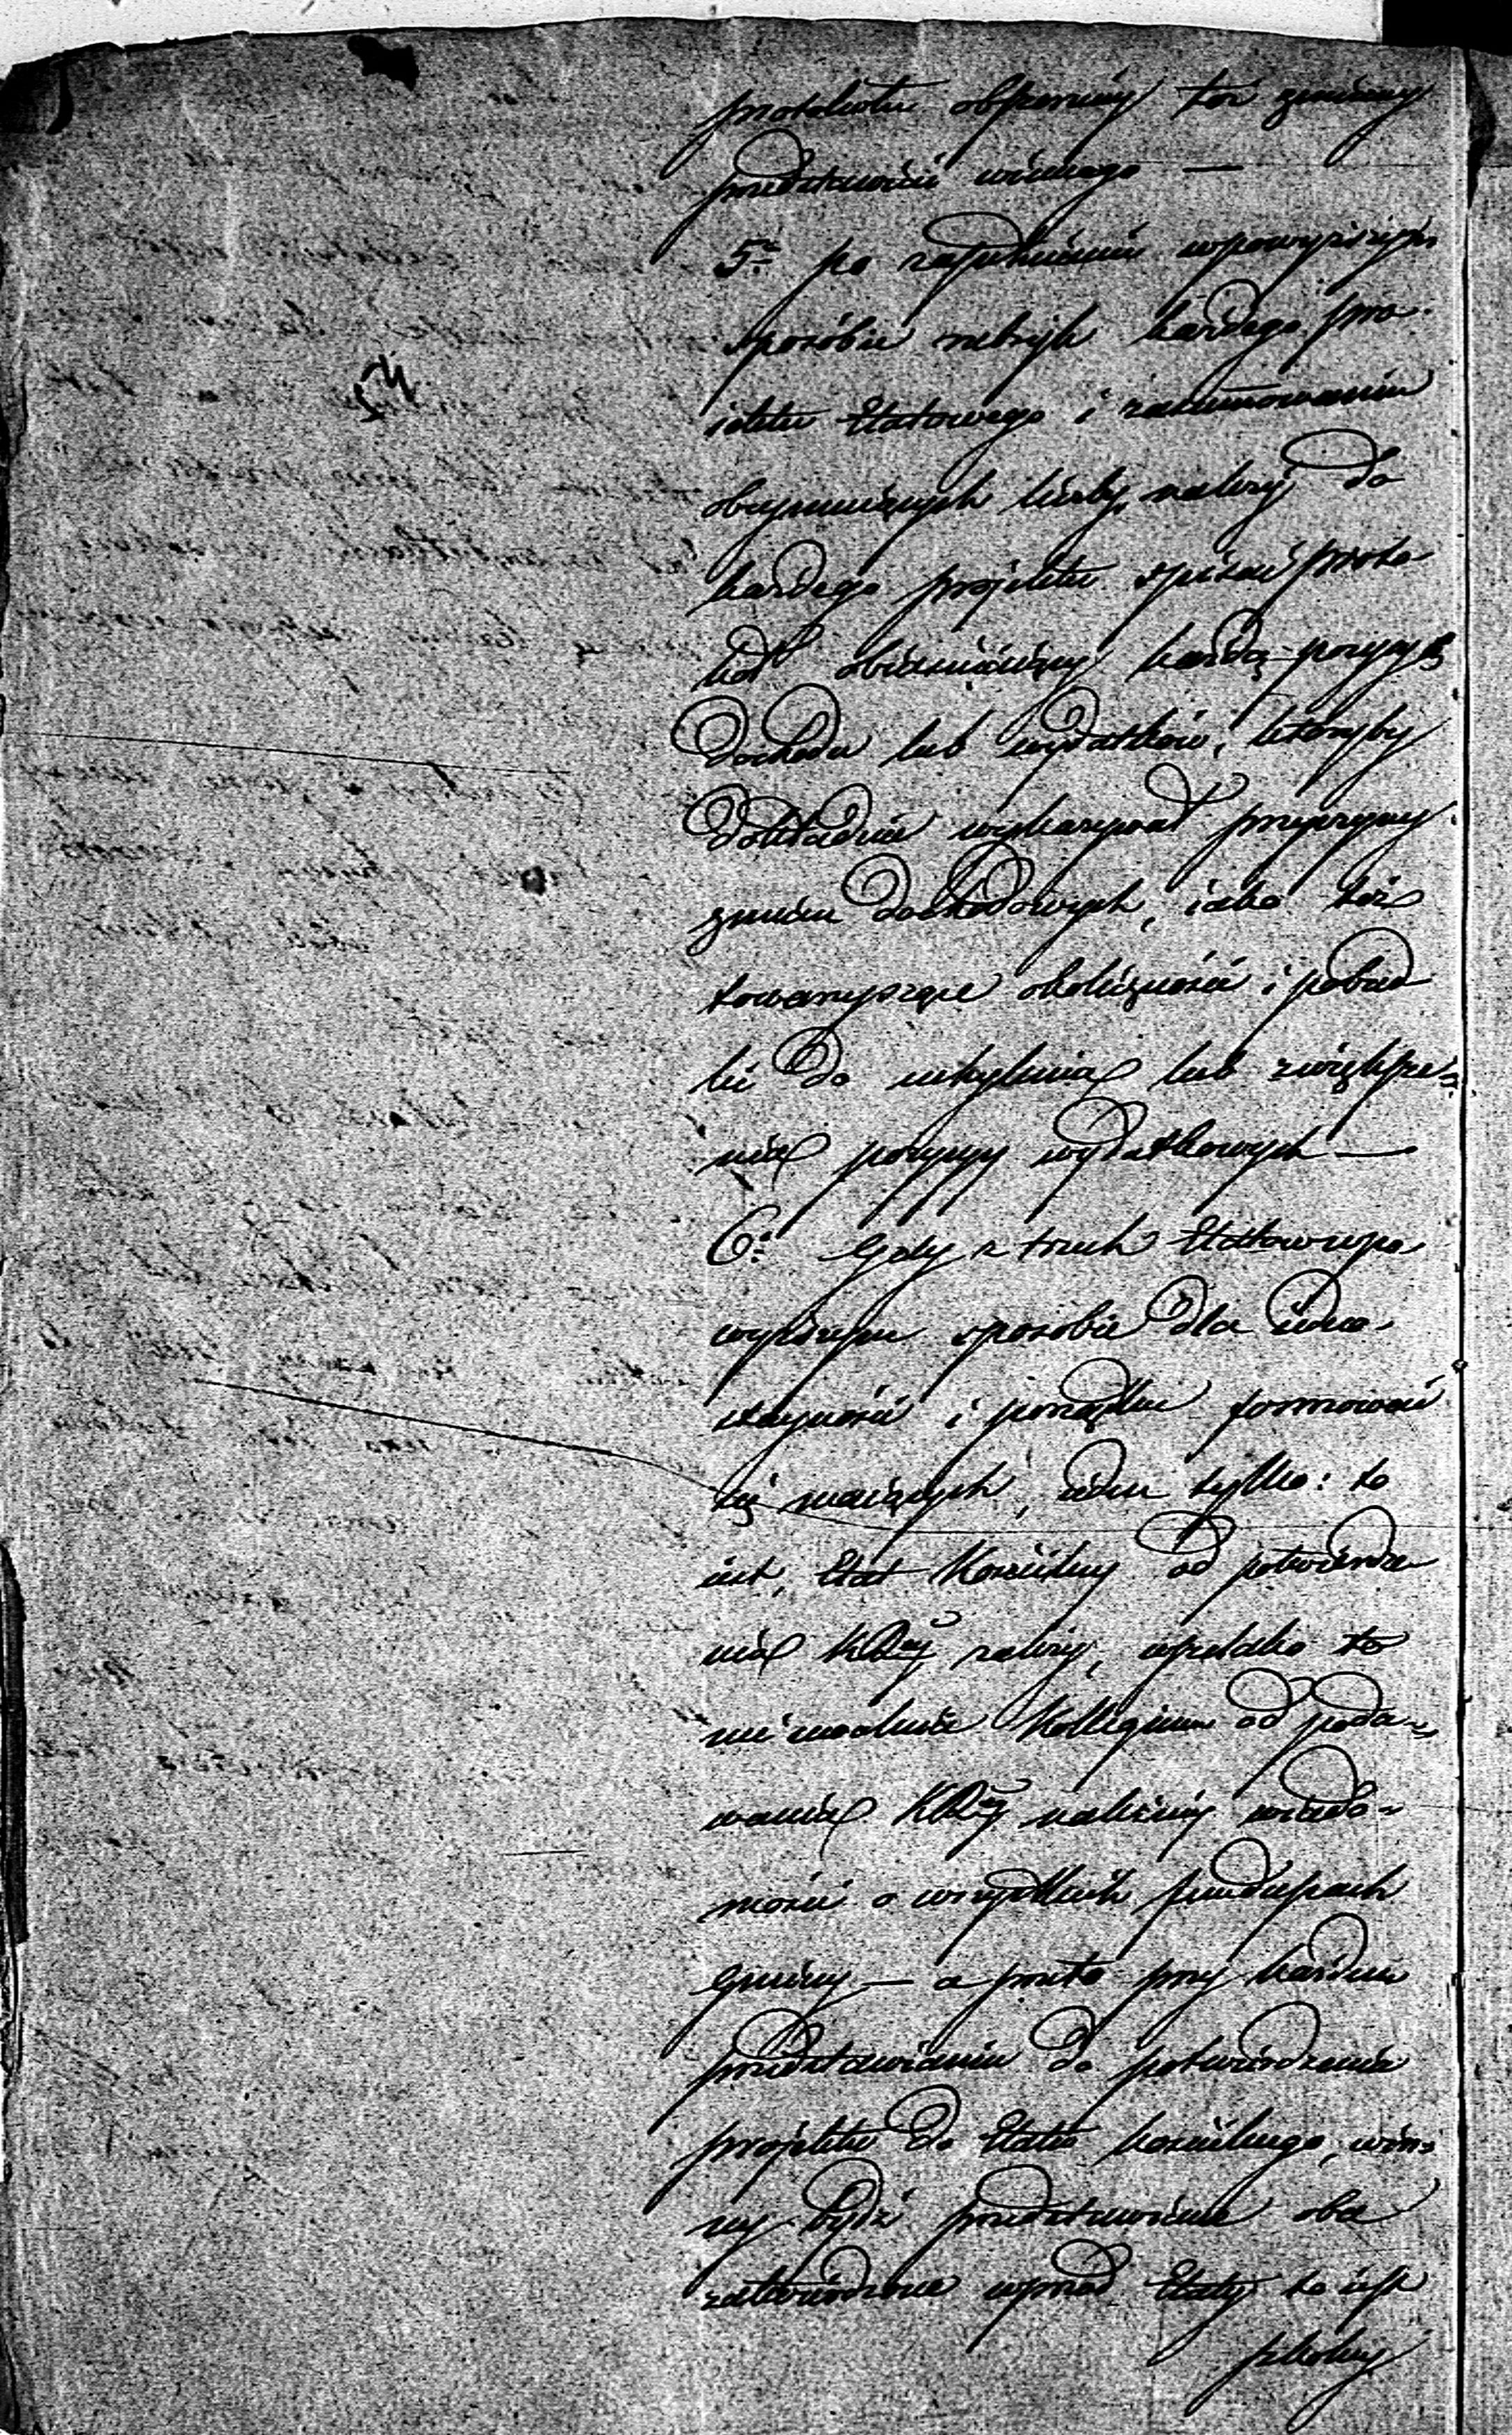 protokułu obszerniey też zmiany
przedstawić winnego —
5te po zapełnieniu w powyższym
sposobie rubryk każdego pro-
iektu Etatowego i zasumowaniu
obeymuiących liczby, należy do
każdego projektu spisać proto
kół obiaśniaiący każdą pozycyę
dochodu lub wydatków, któryby
dokładnie wykazywał przyczyny
zmian dochodowych, iako też
towarzyszące okoliczności i pobud
ki do uchylenia lub zwiększe-
nia pozycyy wydatkowych —
6e Gdy z trzech Etatów w po
wyższym sposobie dla iedno
stayności i porządku formować
się maiących, ieden tylko: to
iest, Etat Kościelny od potwierdze
nia należy, wszelako to
nie uwalnia Kollegium od poda-
wania należney wiado-
mości o wszystkich funduszach
Gminy — a przeto przy każdem
przedstawianiu do potwierdzenia
projektu do Etatu kościelnego, win-
ny bydź przedstawione oba
zatwierdzone wprzód Etaty to iest
szkolny